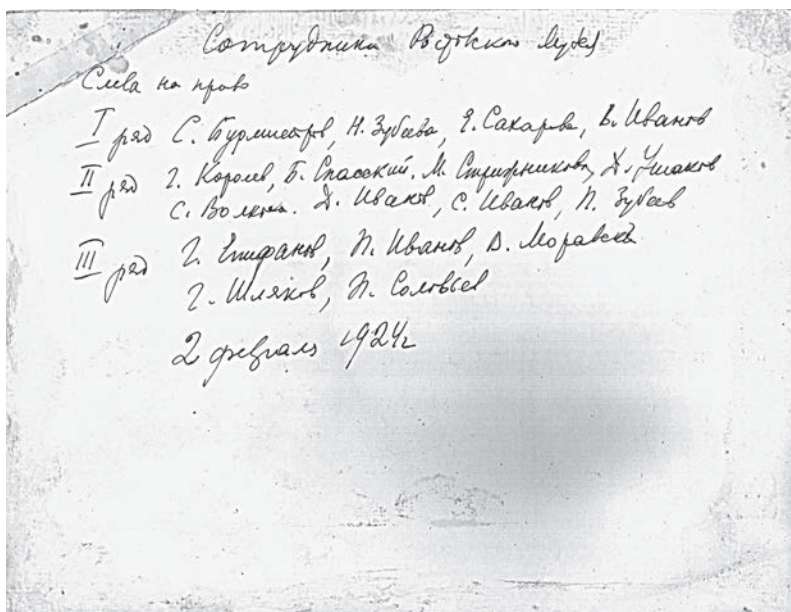 Сотрудники Ростовского Музея
Слева на право
I ряд С. Бурмистров, Н. Зубеева, Е. Сахарова, В. Иванов
II ряд Г. Королев, Б. Спасский. М. Стрижникова, Д. Ушаков
С. Волкова. Д. Иванов, С. Иванов, П. Зубеев
III ряд Г. Епифанов, Н. Иванов, В. Моравский
Г. Шляков, Н. Соловьев
2 февраль 1924г